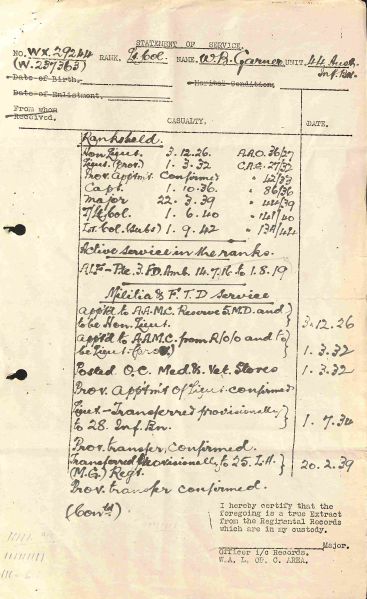 STATEMENT OF SERVICE.
NO. WX.29244 RANK. Lt. Col. NAME. W.B. Garner UNIT. 44 Aust.
(W.237363) Inf. Bn.
Date of Birth, Marital Condition,
Date of Enlistment.
From whom
Received, CASUALTY. DATE.
Ranks held.
Hon. Lieut. 3.12.26. A.A.O. 36/27
Lieut. (prov) 1.3.32 C.A.G. 27/32
Prov. Appttmt. Confirmed " 42/33
Capt. 1.10.36. " 86/36
Major 22.3.39 " 44/39
T/Lt. Col. 1.6.40 " 141/40
Lt. Col. (Subs) 1.9.42 " 134/44
Active Service in the ranks.
AIF - Pte. 3. FD. Amb. 14.7.16 to 1.8.19
Militia & F.T.D Service
Apptd to A.A.M.C. Reserve 5.M.D. and
to be Hon. Lieut. 3.12.26
Apptd to A.A.M.C. from R/o/o and to
be Lieut. (prov) 1.3.32
Posted O.C. Med. & Vet. Stores 1.3.32
Prov. Apptmt of Lieut. confirmed
Lieut - Transferred provisionally
to 28. Inf. Bn. 1.7.34
Prov. transfer, confirmed.
Transferred provisionally to 25. L.H.
(M.G.) Regt. 20.2.39
Prov. transfer confirmed.
(Contd)
I hereby certify that the
foregoing is a true Extract
from the Regimental Records
which are in my custody.
Major.
Officer i/c Records.
W.A. L. OF C. AREA.